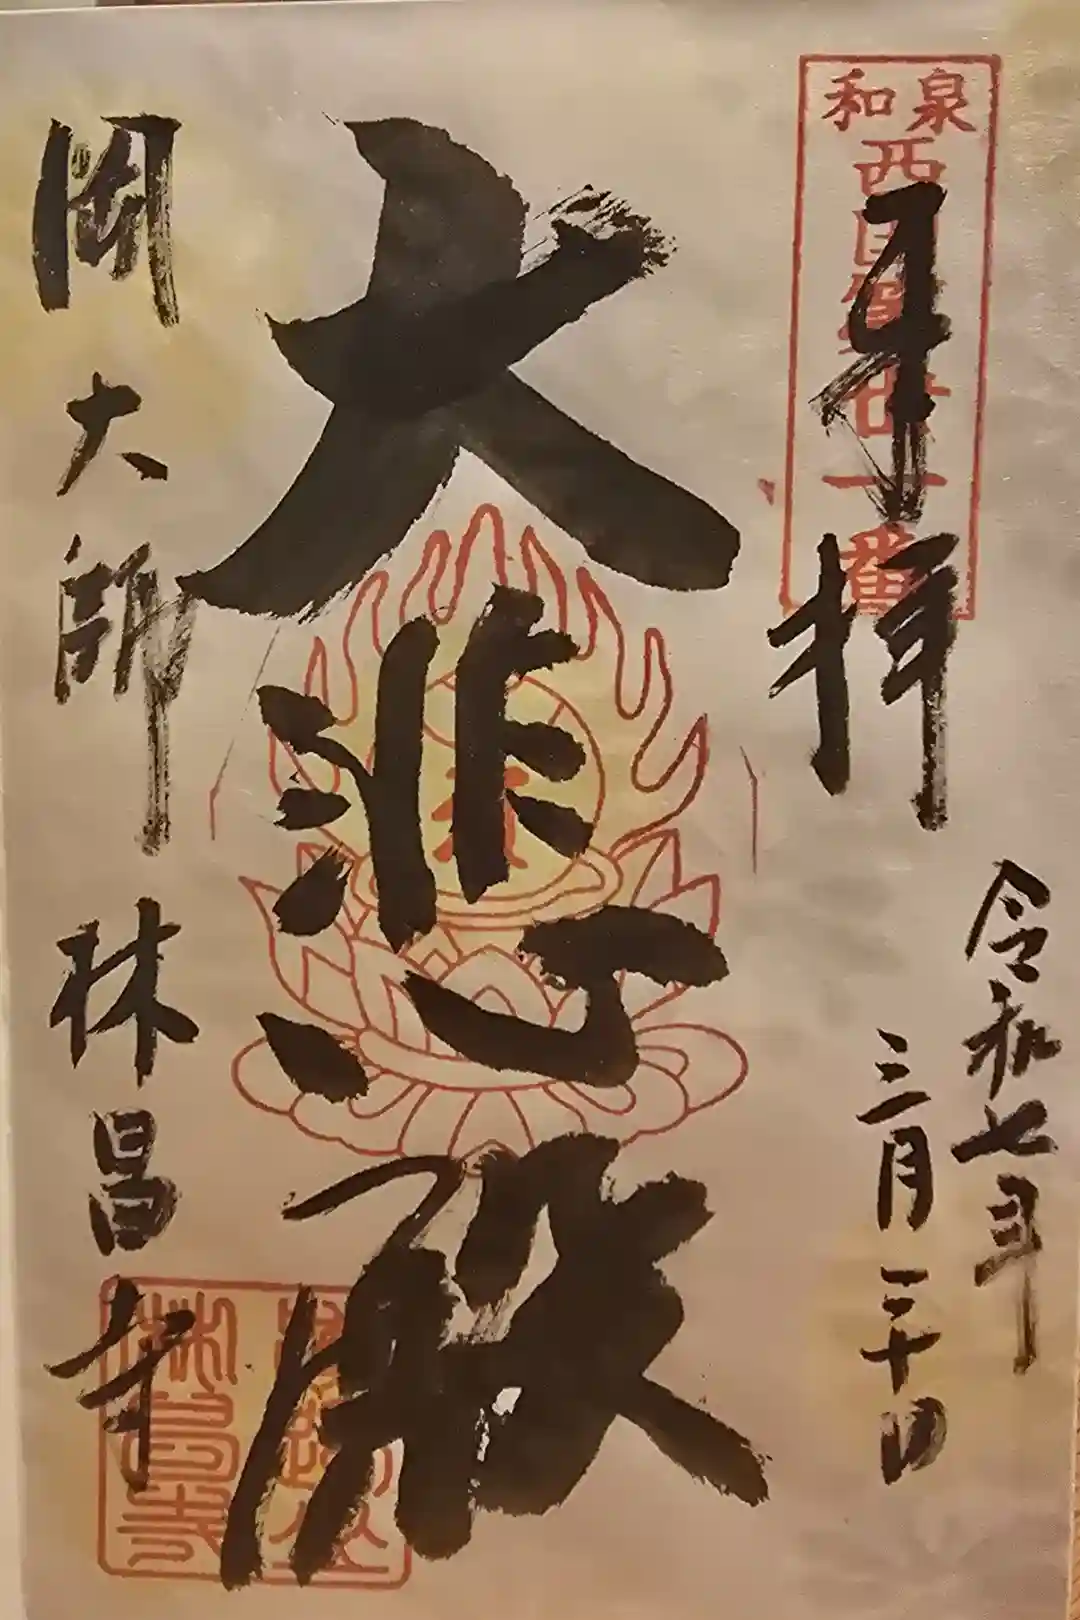 和泉
西国第廿一番
奉拝
令和七年
三月二十日
大悲殿
岡大師 林昌寺
林昌寺